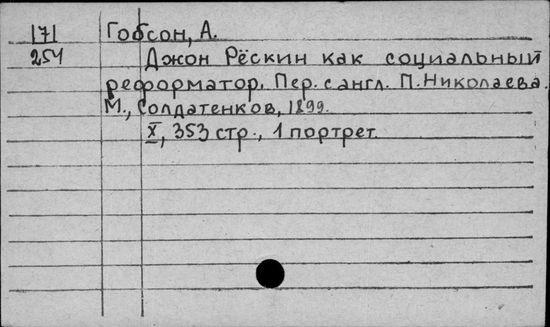 171 Гобсон, А.
254 Джон Рёскин как социальный
реформатор. Пер. с англ. П. Николаева.
М., Солдатенков, 1899.
X, 353 стр., 1 портрет.